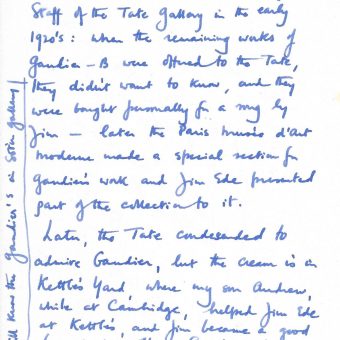 Staff of the Tate Gallery in the early
1920's: when the remaining works of
Gaudier-B were offered to the Tate,
they didn't want to know, and they
were bought personally for a song by
Jim – later the Paris musée d'art
moderne made a special section for
Gaudier's work and Jim Ede presented
part of the collection to it.
Later, the Tate condescended to
admire Gaudier, but the cream is in
Kettle's Yard, where my son Andrew,
while at Cambridge, helped Jim Ede
at Kettle's, and Jim became a good
know the Gaudier's in gallery)